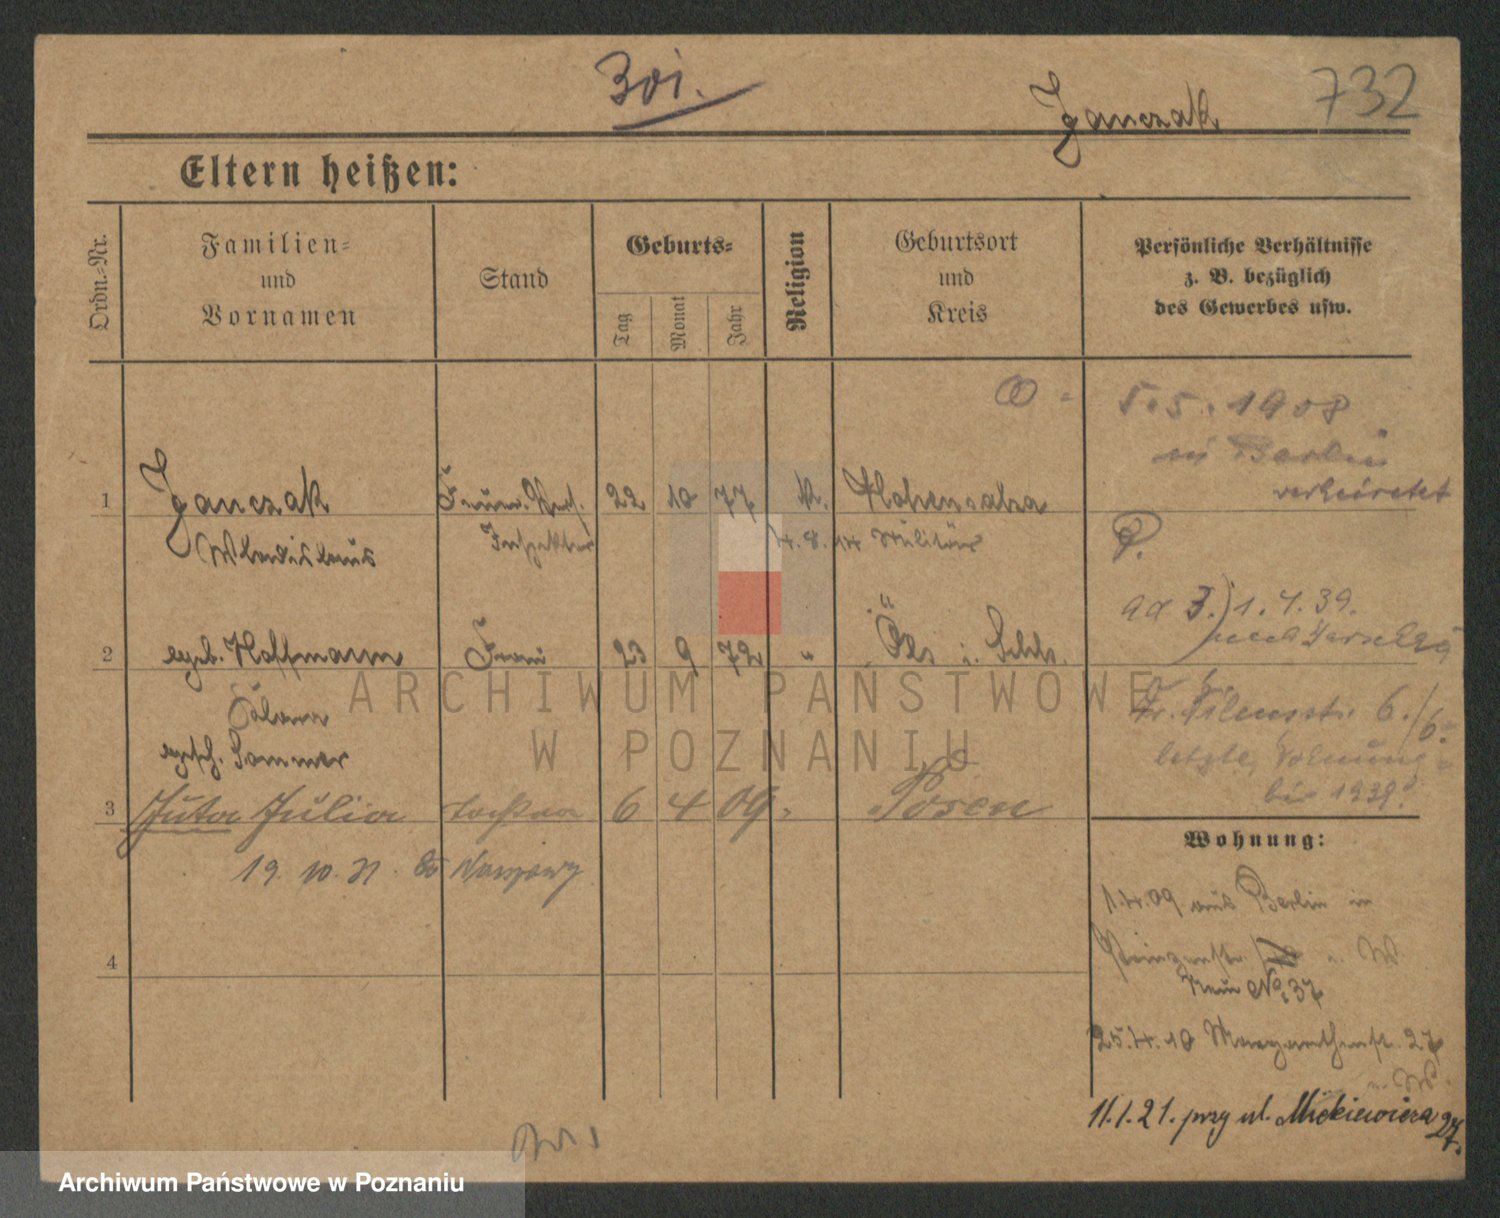 301.
Janczak
732
Eltern heißen:
Ordn.=Nr.
Familien=
und
Vornamen
Stand
Geburts=
Tag
Monat
Jahr
Religion
Geburtsort
und
Kreis
Persönliche Verhältnisse
z. B. bezüglich
des Gewerbes usw.
5.5.1908
in Berlin
verheiratet
1 Janczak 22 10 77 K. Hohensalza
Wladislaus Inspektor 4.8.14 Militär
P.
ad 3.) 1.4.39.
2 geb. Hoffmann Frau 23 9 72 " Öls i. Schls.
gesch. Sommer
letzte Wohnung
bis 1939.
3 Juta Julia 6 4 09 " Posen
19. 10. 31 do Warszawy
4
Wohnung:
1.4.09 aus Berlin in
Neu No. 37
25.4.10 Margarethenstr. 27
11.1.21. przy ul. Mickiewicza 27.
ARCHIWUM PAŃSTWOWE
W POZNANIU
Archiwum Państwowe w Poznaniu